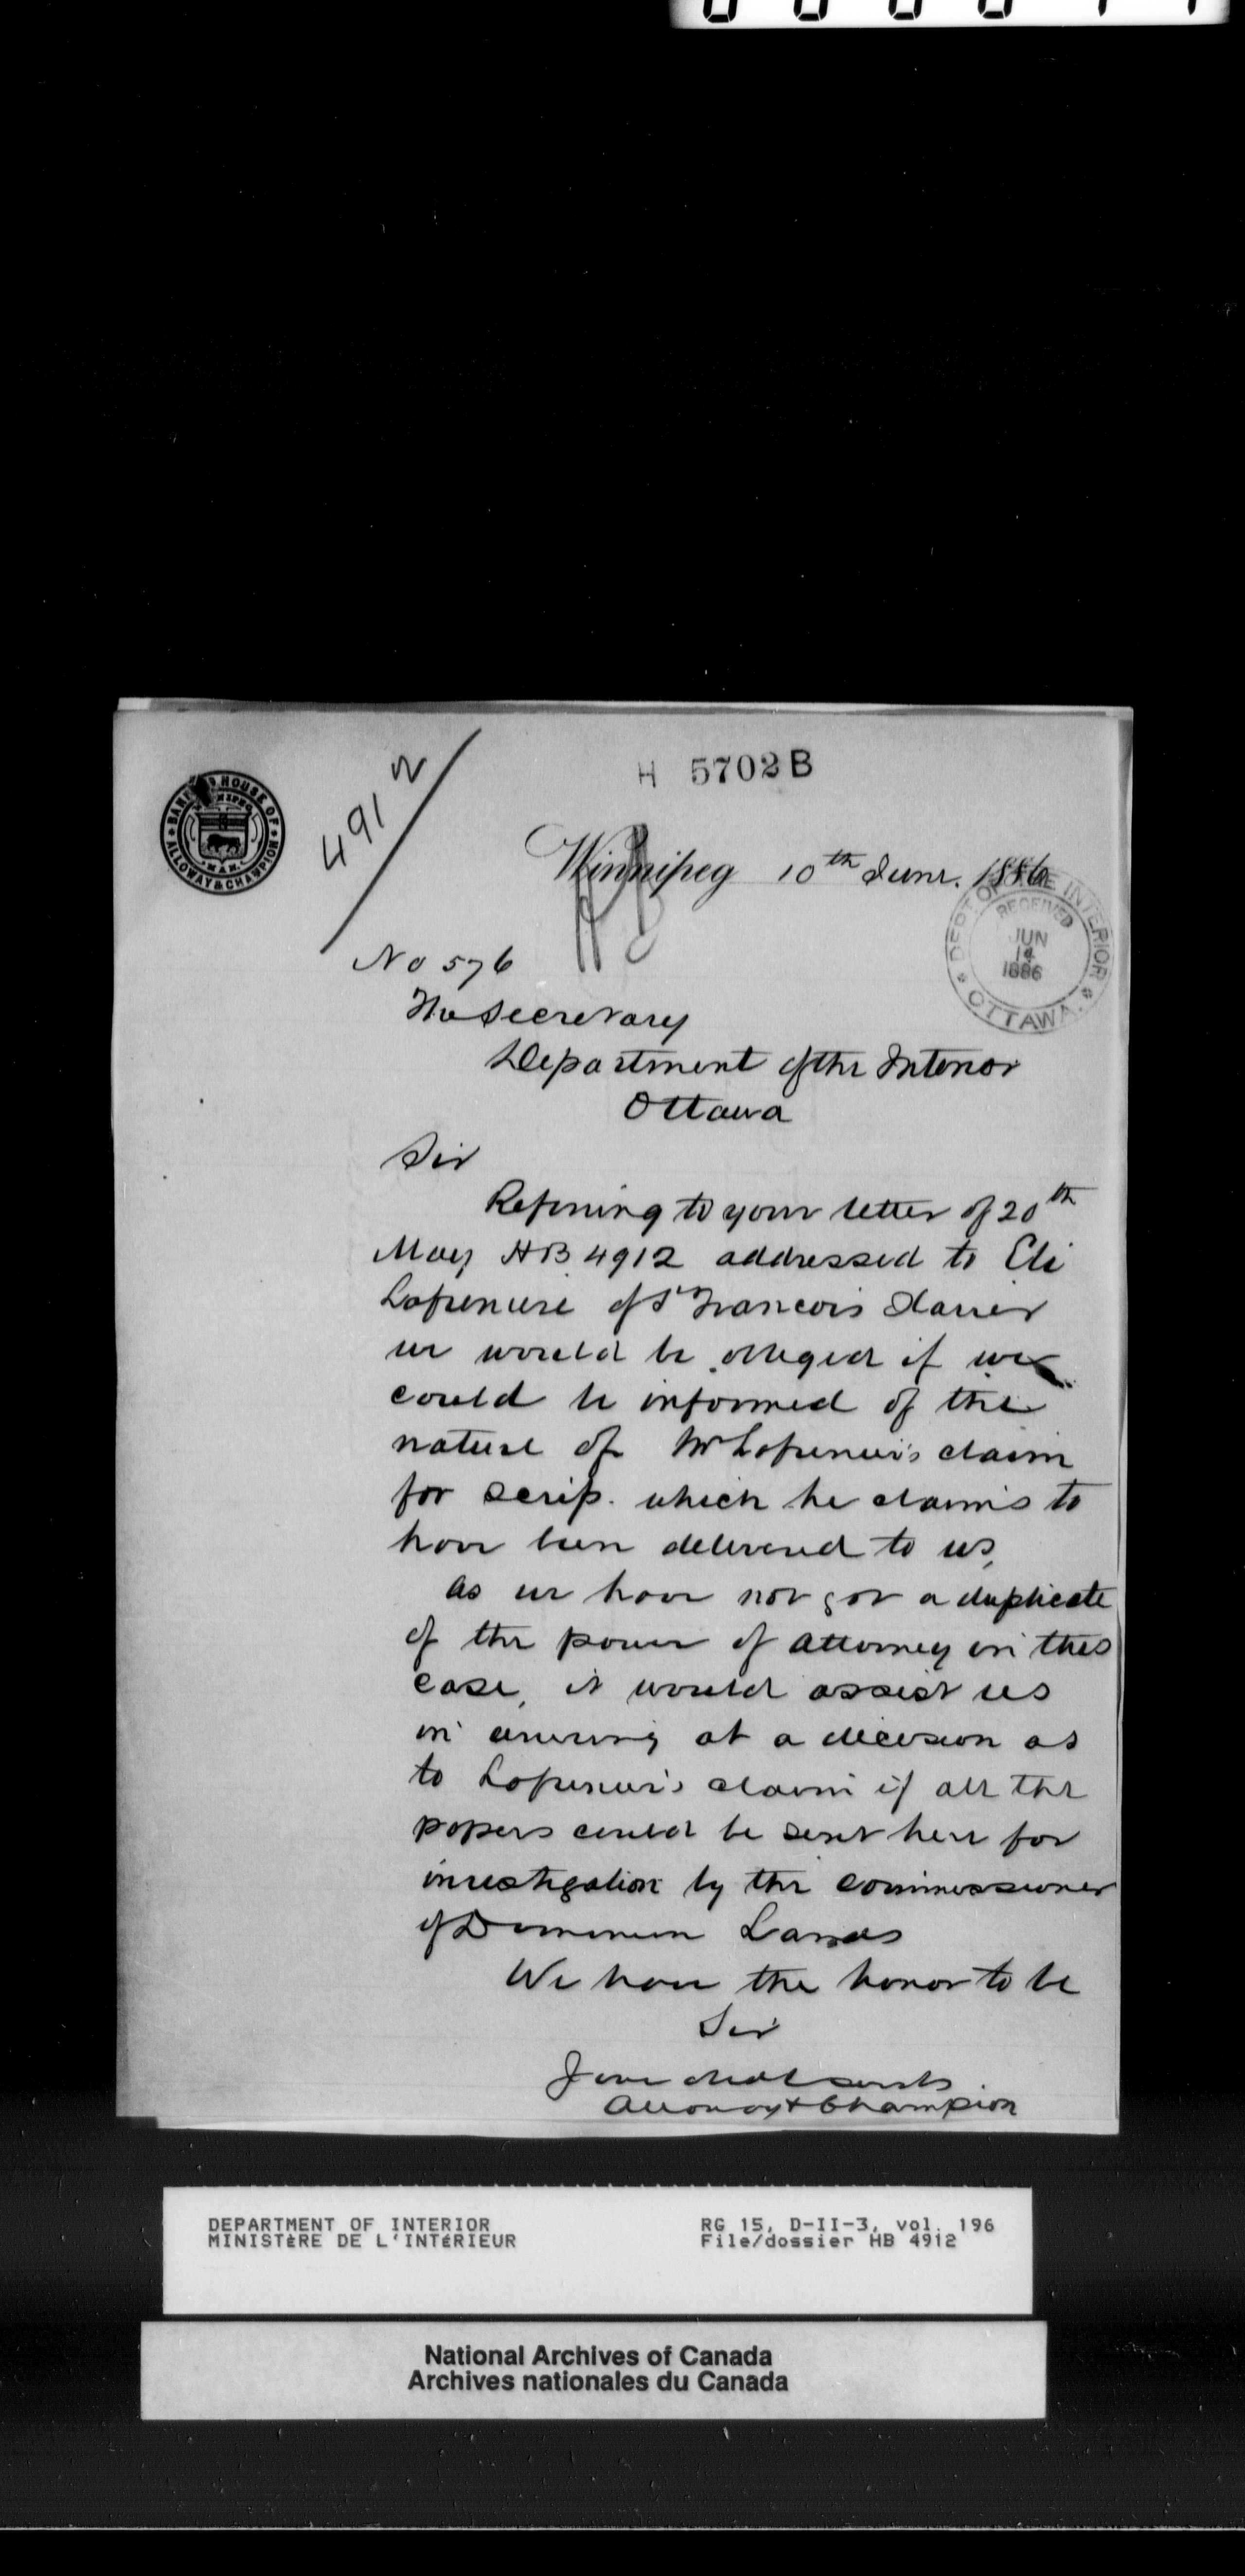 H 5702 B
BANKING HOUSE OF ALLOWAY & CHAMPION
WINNIPEG MAN.
4912
Winnipeg 10th June. 1886
DEPT. OF THE INTERIOR
RECEIVED
JUN
14
1886
OTTAWA.
No 576
The Secretary
Department of the Interior
Ottawa
Sir
Referring to your letter of 20th
May HB 4912 addressed to Eli
Lapreniere of St Francois Xavier
we would be obliged if we
could be informed of the
nature of Mr Lapreniere's claim
for scrip. which he claims to
have been delivered to us,
as we have not got a duplicate
of the power of attorney in this
case, it would assist us
in arriving at a decision as
to Lapreniere's claim if all the
papers could be sent here for
investigation by the Commissioner
of Dominion Lands
We have the honor to be
Sir
Your obedt servts
Alloway & Champion
DEPARTMENT OF INTERIOR
MINISTÈRE DE L'INTÉRIEUR
RG 15, D-II-3, vol. 196
File/dossier HB 4912
National Archives of Canada
Archives nationales du Canada